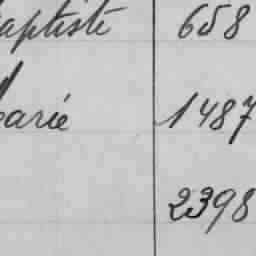 aptiste 658
arie 1487
2398